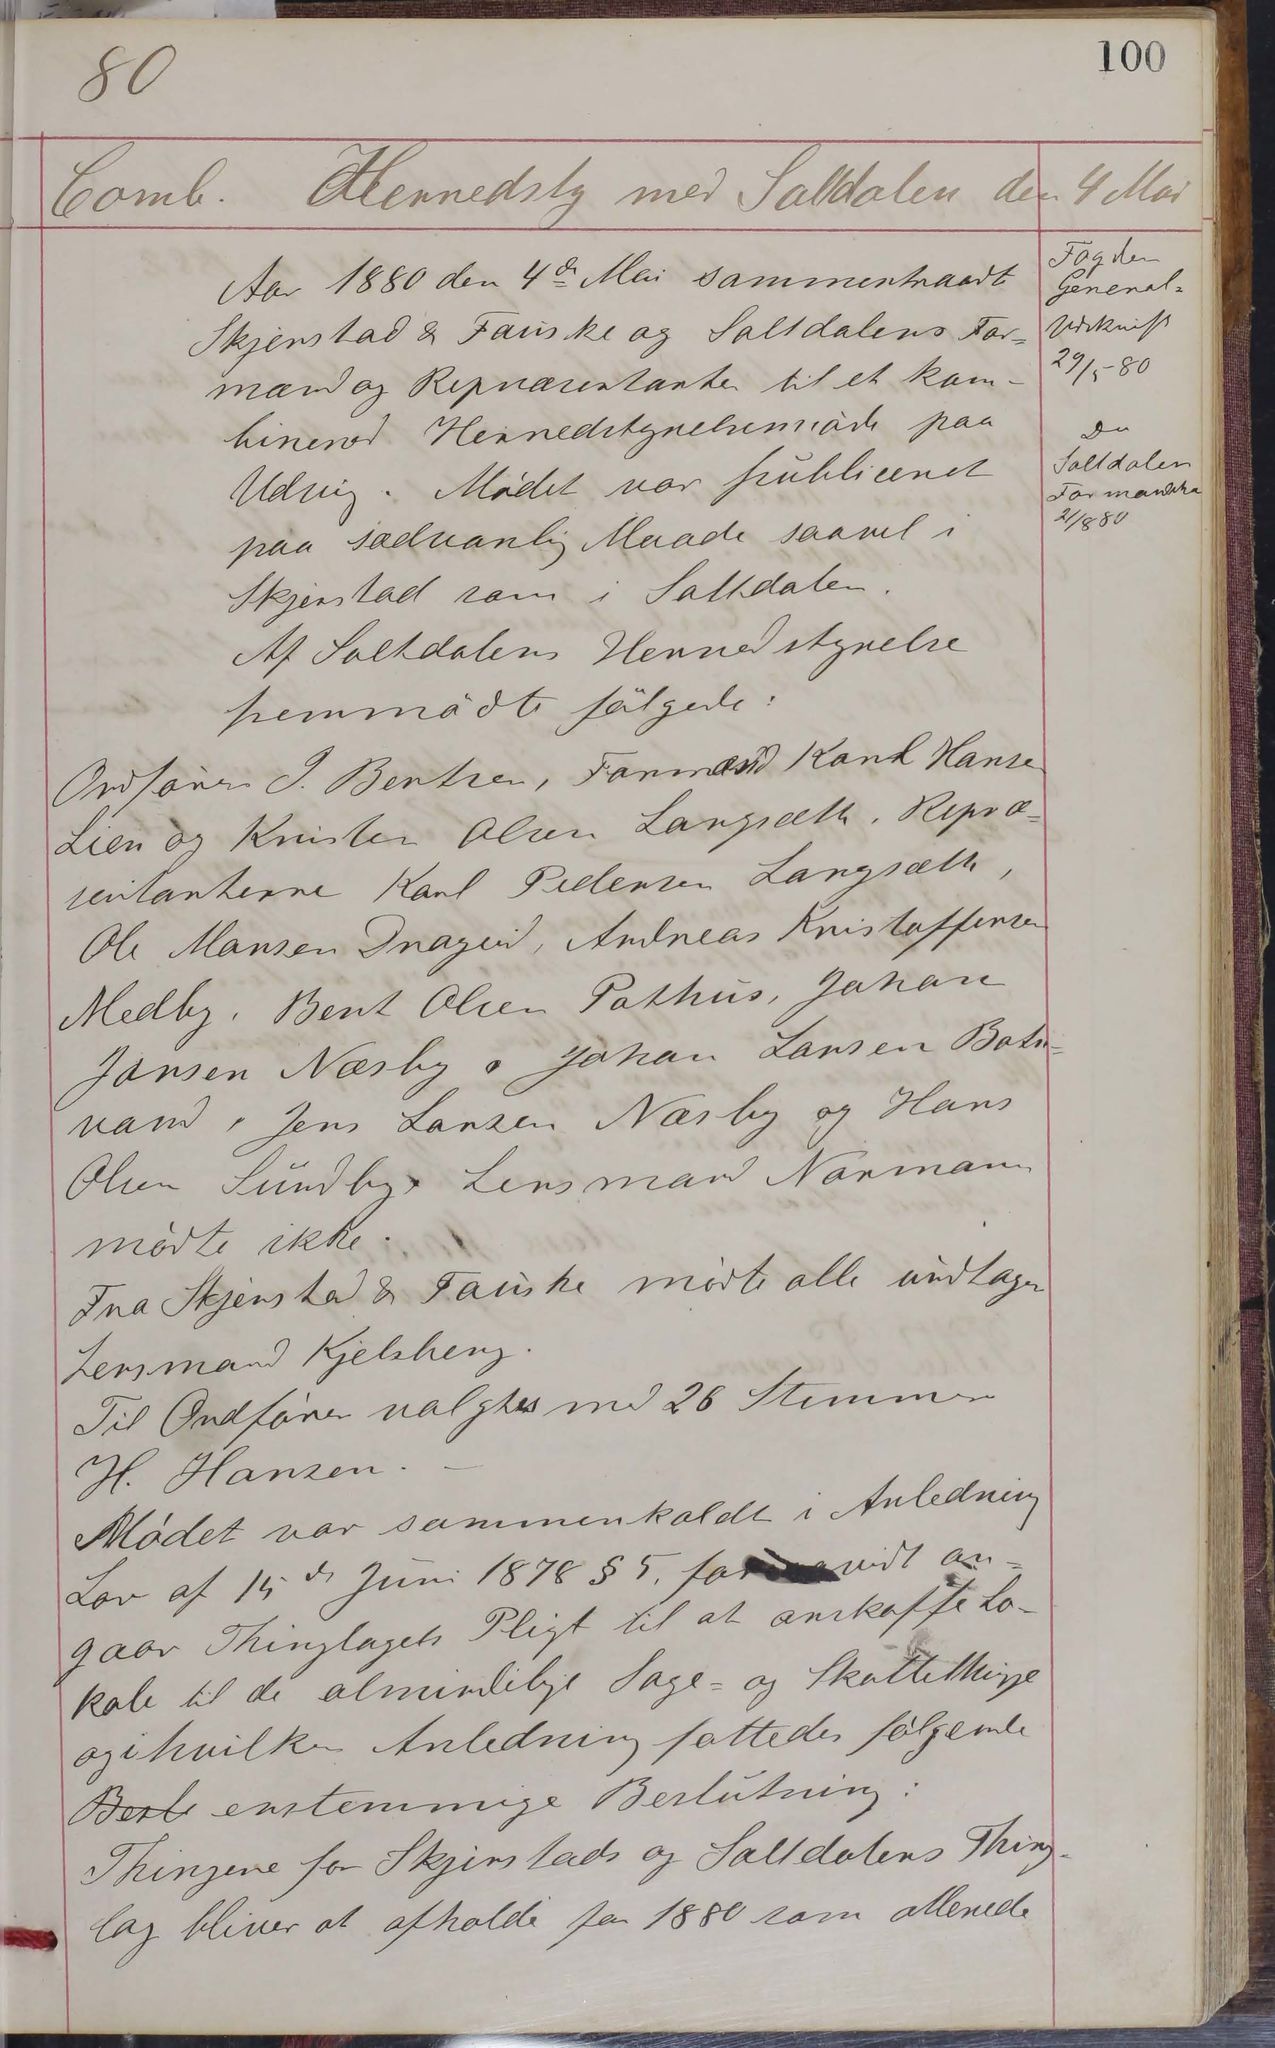 80
100
Comb. Herredsty med Saltdalen den 4 Mai
Aar 1880 den 4de Mai sammentraadte
Skjerstad & Fauske og Saltdalens For=
mænd og Repræsentanter til et kom-
bineret Herredstyrelsemöde paa
Udvig. Mödet var publiceret
paa sædvanlig Maade saavel i
Skjerstad som i Saltdalen.
Af Saltdalens Herredstyrelse
fremmödte fölgede:
Ordförer J. Bentsen, Formænd Karl Hansen
Lien og Kristen Olsen Langsæth. Repræ=
sentanterne Karl Pedersen Langsæth,
Ole Monsen Drageid, Andreas Kristoffersen
Medby, Bent Olsen Pothus, Johan
Jonsen Næsby, Johan Larsen Botn=
vand, Jens Larsen Næsby og Hans
Olsen Sundby. Lensmand Normann
mödte ikke.
Fra Skjerstad & Fauske mödte alle undtagen
Lensmand Kjelsberg.
Til Ordförer valgtes med 26 Stemmer
H. Hansen. —
Mödet var sammenkaldt i Anledning
Lov af 15de Juni 1878 § 5. for vidt an=
gaar Thinglagets Pligt til at anskaffe Lo-
kale til de almindelige Sage= og Skattethinge
og i hvilken Anledning fattedes fölgende
Besl enstemmige Beslutning:
Thingene for Skjerstads og Saltdalens Thing-
lag bliver at afholde for 1880 som allerede
Fogden
General=
Udskrift
29/5-80
Do
Saltdalen
Formandska
2/8 80